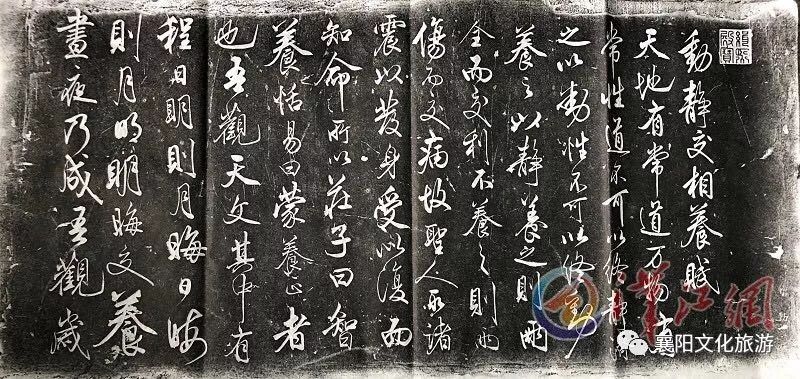 動靜交相養賦
天地有常道万物有
常性道不可以終靜濟
之以動性不可以終動
養之以靜養之則兩
全而交利不養之則兩
傷而交病故聖人取諸
震以發身受以復而
知命所以莊子曰智
養恬易曰蒙養正者
也吾觀天文其中有
程日明則月晦日晦
則月明明晦交養
晝夜乃成吾觀歲
漢江網
襄阳文化旅游